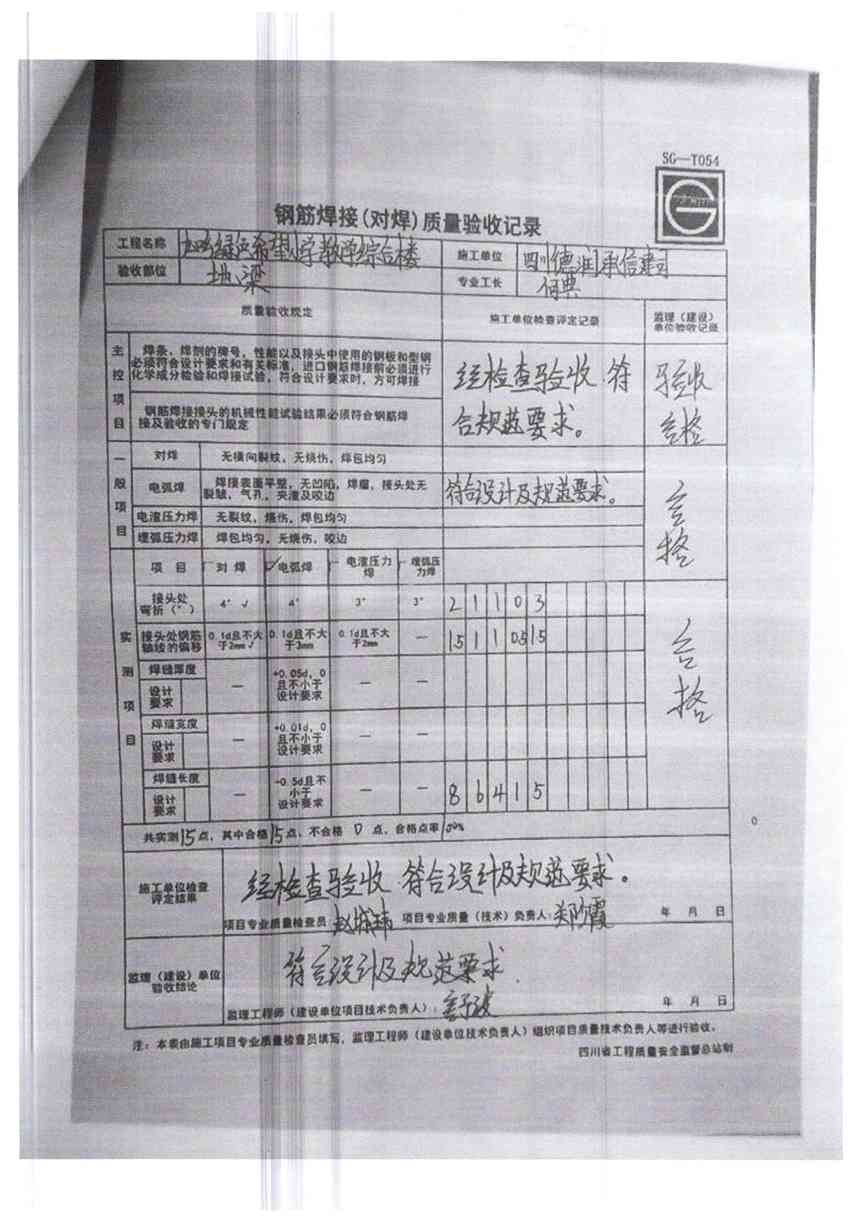 SG—T054
钢筋焊接(对焊)质量验收记录
工程名称 希望小学教学综合楼 施工单位 四川德润承信建司
验收部位 地梁 专业工长 何典
质量验收规定 施工单位检查评定记录 监理(建设)单位验收记录
主控项目
焊条、焊剂的牌号,性能以及接头中使用的钢板和型钢
必须符合设计要求和有关标准,进口钢筋焊接前必须进行
化学成分检验和焊接试验,符合设计要求时,方可焊接
经检查验收.符 验收
钢筋焊接接头的机械性能试验结果必须符合钢筋焊
接及验收的专门规定
合规范要求。 合格
一般项目
对焊 无横向裂纹,无烧伤,焊包均匀
电弧焊 焊接表面平整,无凹陷,焊瘤,接头处无
裂皱,气孔,夹渣及咬边
符合设计及规范要求。 合格
电渣压力焊 无裂纹,烧伤,焊包均匀
埋弧压力焊 焊包均匀,无烧伤,咬边
实测项目
项目 对焊 √电弧焊 电渣压力焊 埋弧压力焊
接头处弯折(°) 4° √ 4° 3° 3° 2 1 1 0 3
接头处钢筋轴线的偏移 0.1d且不大于2mm√ 0.1d且不大于3mm 0.1d且不大于2mm — 1.5 1 1 0.5 1.5 合格
焊缝厚度 设计要求 — +0.05d,0且不小于设计要求 — —
焊缝宽度 设计要求 — +0.01d,0且不小于设计要求 — —
焊缝长度 设计要求 — +0.5d且不小于设计要求 — — 8 6 4 1 5
共实测15点,其中合格15点,不合格 0 点,合格点率100%
施工单位检查评定结果 经检查验收.符合设计及规范要求。
项目专业质量检查员: 项目专业质量(技术)负责人: 年 月 日
监理(建设)单位验收结论 符合设计及规范要求.
监理工程师(建设单位项目技术负责人): 年 月 日
注:本表由施工项目专业质量检查员填写,监理工程师(建设单位技术负责人)组织项目质量技术负责人等进行验收。
四川省工程质量安全监督总站制